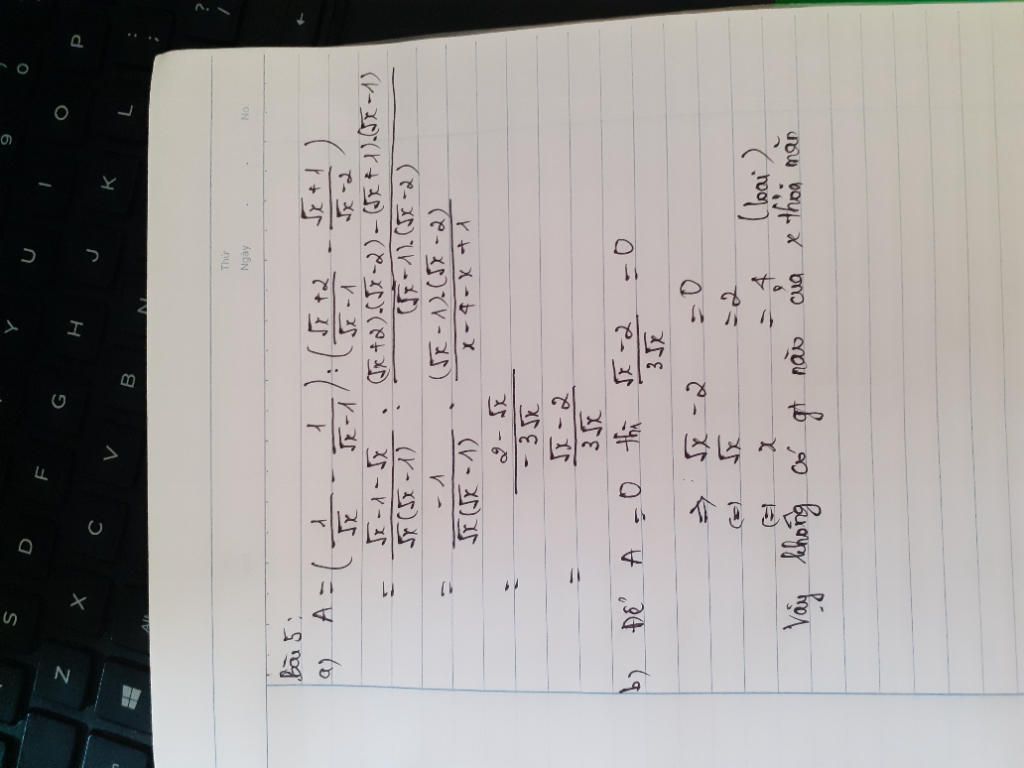 Thứ
Ngày . . No
Bài 5:
a) A = ( 1/√x - 1/(√x - 1) ) : ( (√x + 2)/(√x - 1) - (√x + 1)/(√x - 2) )
= (√x - 1 - √x)/(√x(√x - 1)) : ((√x + 2).(√x - 2) - (√x + 1).(√x - 1))/((√x - 1).(√x - 2))
= -1/(√x(√x - 1)) . ((√x - 1).(√x - 2))/(x - 4 - x + 1)
= (2 - √x)/(-3√x)
= (√x - 2)/(3√x)
b) Để A = 0 thì (√x - 2)/(3√x) = 0
=> √x - 2 = 0
(=) √x = 2
(=) x = 4 (loại)
Vậy không có gt nào của x thỏa mãn